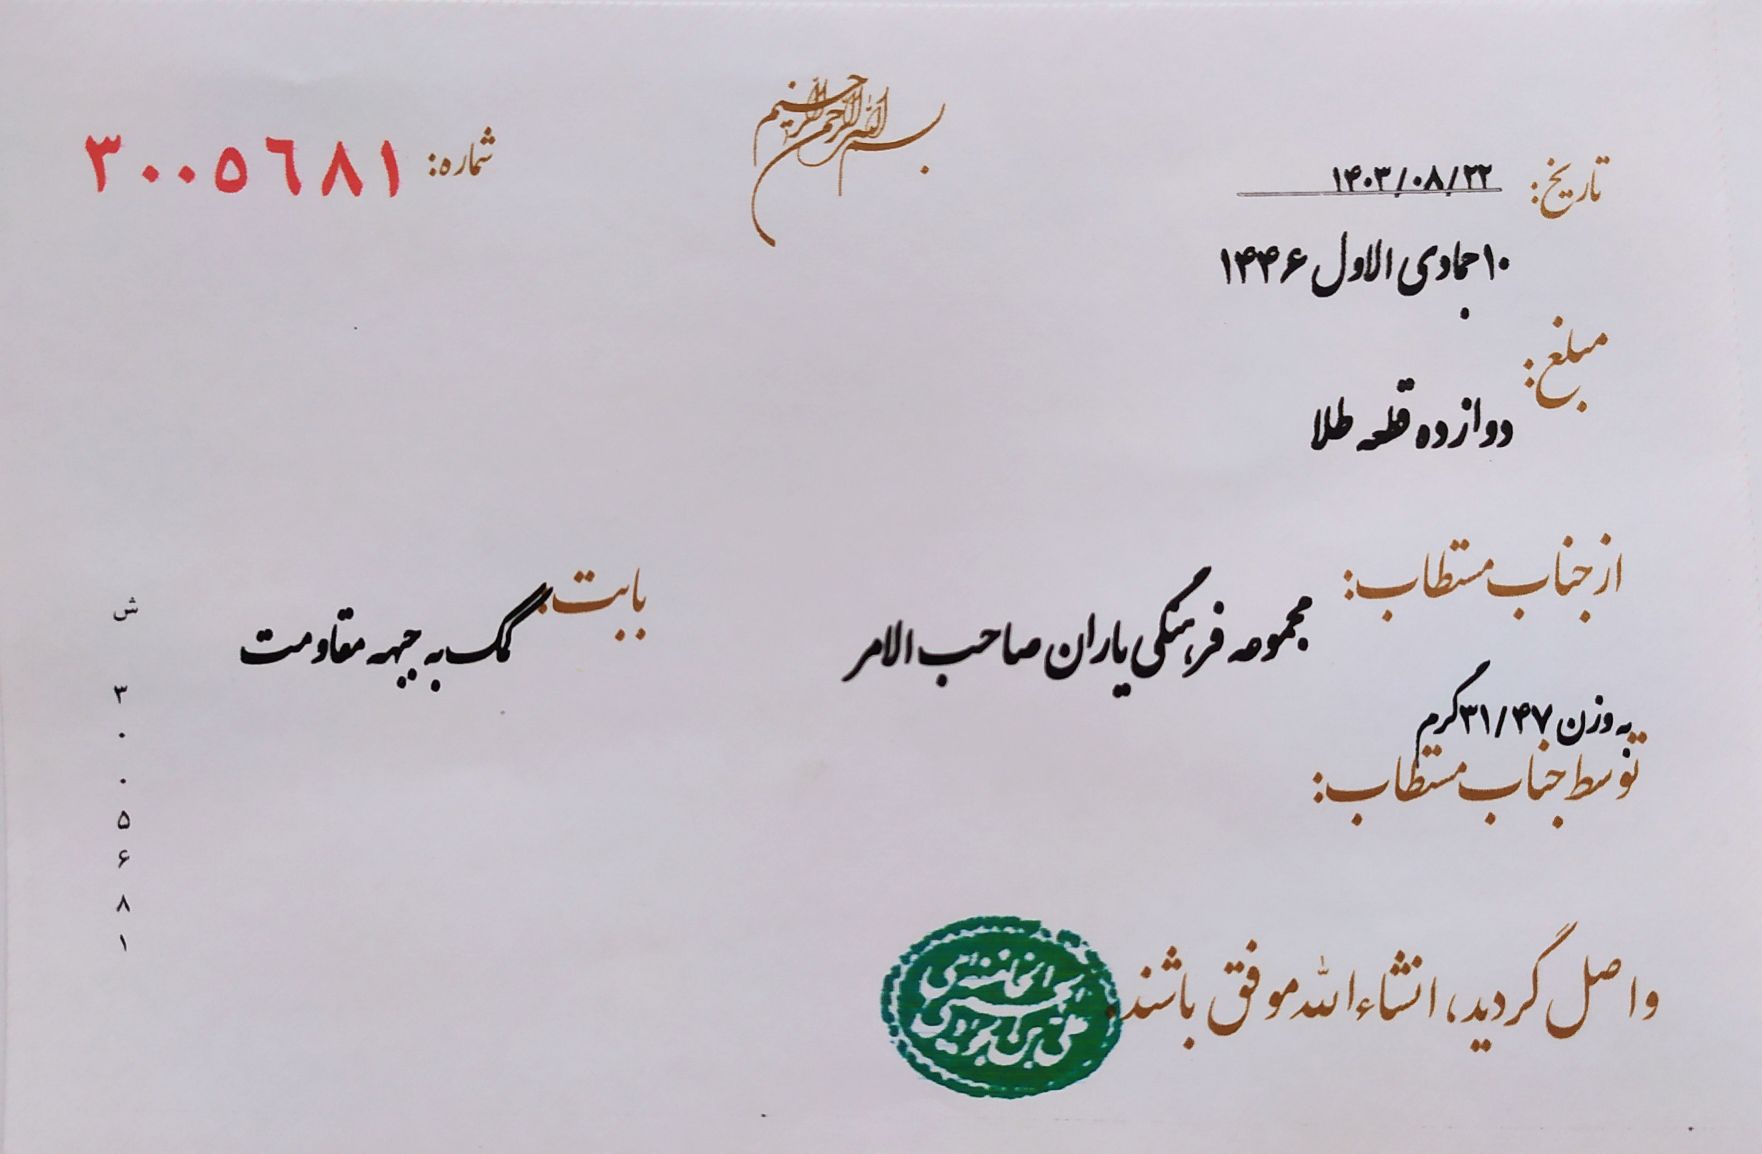 بسم الله الرحمن الرحیم
تاریخ: ۱۴۰۳/۰۸/۲۲
شماره: ٣٠٠٥٦٨١
۱۰ جمادی الاول ۱۴۴۶
مبلغ:
دوازده قطعه طلا
از جناب مستطاب: مجموعه فرهنگی یاران صاحب الامر
بابت: کمک به جبهه مقاومت
به وزن ۳۱/۴۷ گرم
توسط جناب مستطاب:
واصل گردید، انشاءالله موفق باشند.
ش ۳۰۰۵۶۸۱